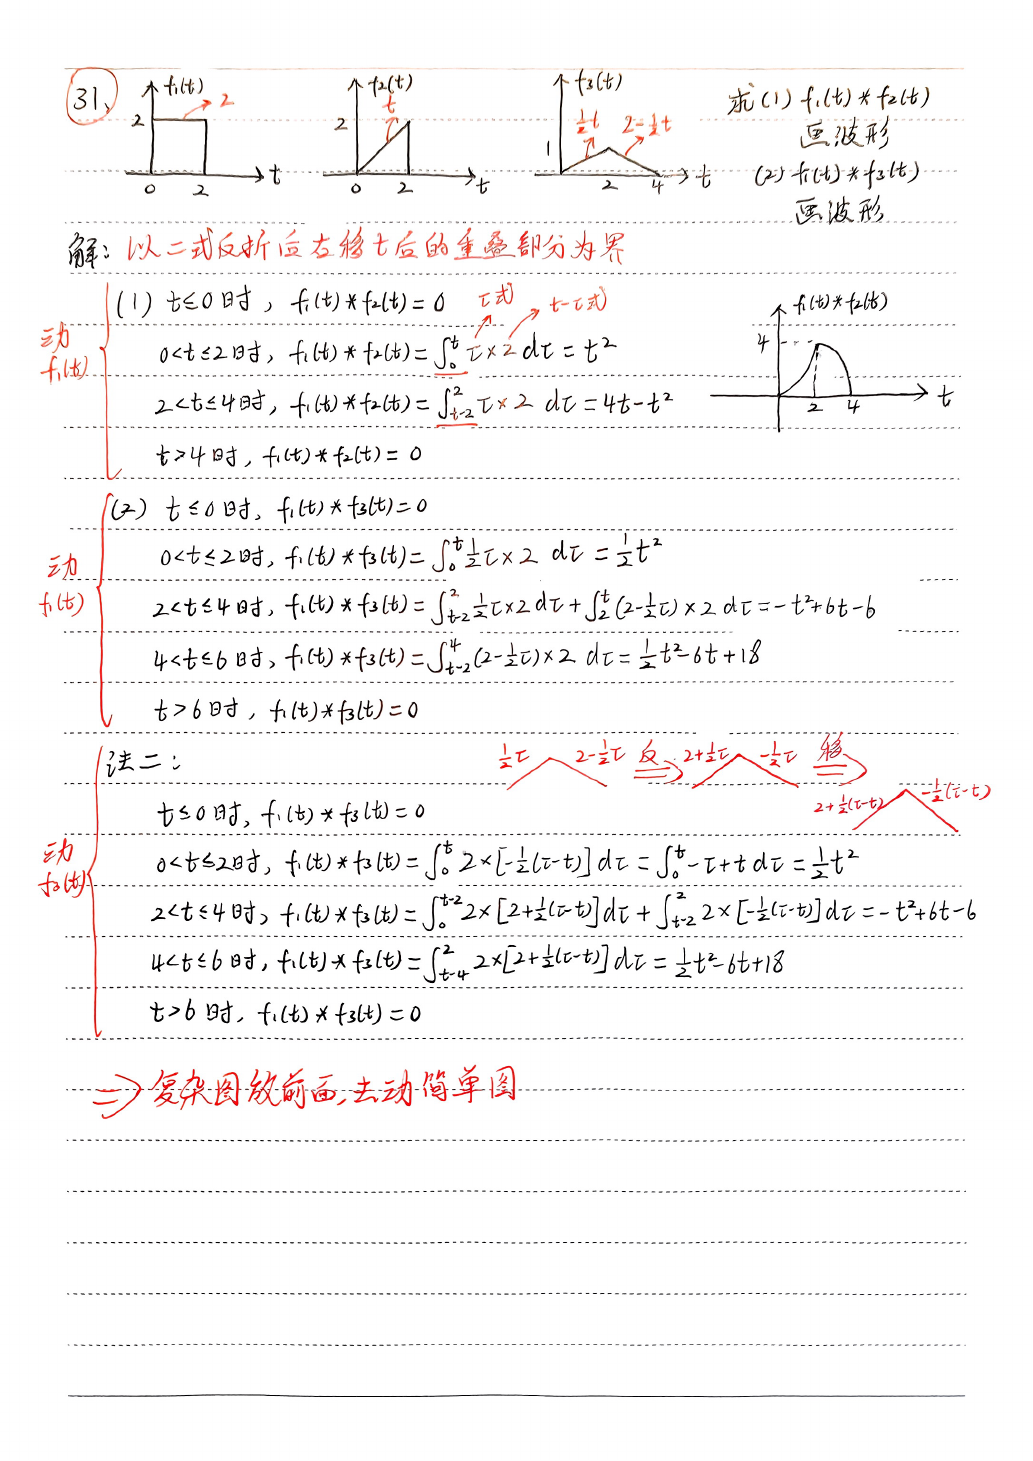 31、 f₁(t) 2 2 0 2 t f₂(t) t 2 0 2 t f₃(t) ½t 2-½t 1 2 4 t 求(1) f₁(t)*f₂(t)
画波形
(2) f₁(t)*f₃(t)
画波形
解: 以二式反折后右移t后的重叠部分为界
动f₁(t)
(1) t≤0时, f₁(t)*f₂(t)=0 τ式 t-τ式
0<t≤2时, f₁(t)*f₂(t)=∫₀ᵗ τ×2 dτ = t²
2<t≤4时, f₁(t)*f₂(t)=∫_{t-2}^{2} τ×2 dτ = 4t-t²
t>4时, f₁(t)*f₂(t)=0
f₁(t)*f₂(t) 4 2 4 t
动f₁(t)
(2) t≤0时, f₁(t)*f₃(t)=0
0<t≤2时, f₁(t)*f₃(t)=∫₀ᵗ ½τ×2 dτ = ½t²
2<t≤4时, f₁(t)*f₃(t)=∫_{t-2}^{2} ½τ×2 dτ+∫₂ᵗ (2-½τ)×2 dτ=-t²+6t-6
4<t≤6时, f₁(t)*f₃(t)=∫_{t-2}^{4} (2-½τ)×2 dτ=½t²-6t+18
t>6时, f₁(t)*f₃(t)=0
法二: ½τ 2-½τ 反⇒ 2+½τ -½τ 移⇒
2+½(τ-t) -½(τ-t)
动f₃(t)
t≤0时, f₁(t)*f₃(t)=0
0<t≤2时, f₁(t)*f₃(t)=∫₀ᵗ 2×[-½(τ-t)]dτ=∫₀ᵗ -τ+t dτ=½t²
2<t≤4时, f₁(t)*f₃(t)=∫₀^{t-2} 2×[2+½(τ-t)]dτ+∫_{t-2}^{2} 2×[-½(τ-t)]dτ=-t²+6t-6
4<t≤6时, f₁(t)*f₃(t)=∫_{t-4}^{2} 2×[2+½(τ-t)]dτ=½t²-6t+18
t>6时, f₁(t)*f₃(t)=0
⇒复杂图放前面,去动简单图